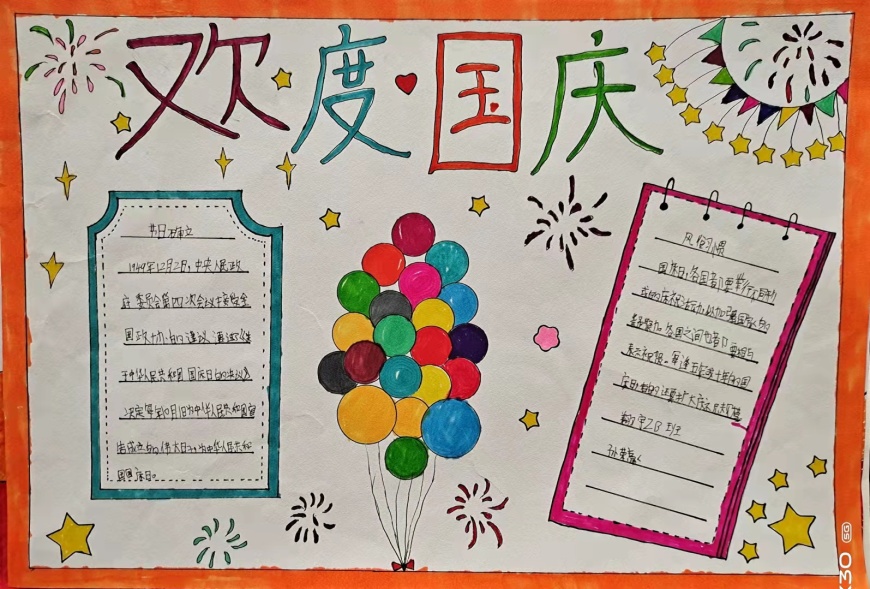 欢度国庆
节日确立
1949年12月2日,中央人民政
府委员会第四次会议接受全
国政协的建议,通过《关
于中华人民共和国国庆日的决议》
决定每年10月1日为中华人民共和国宣
告成立的伟大日子,为中华人民共和
国国庆日。
风俗习惯
国庆日,各国都要举行不同形
式的庆祝活动,以加强国家的
各国之间也都要相互
表示祝贺。逢五逢十的国
庆日,有的还要扩大庆祝规模
班
X30
5G